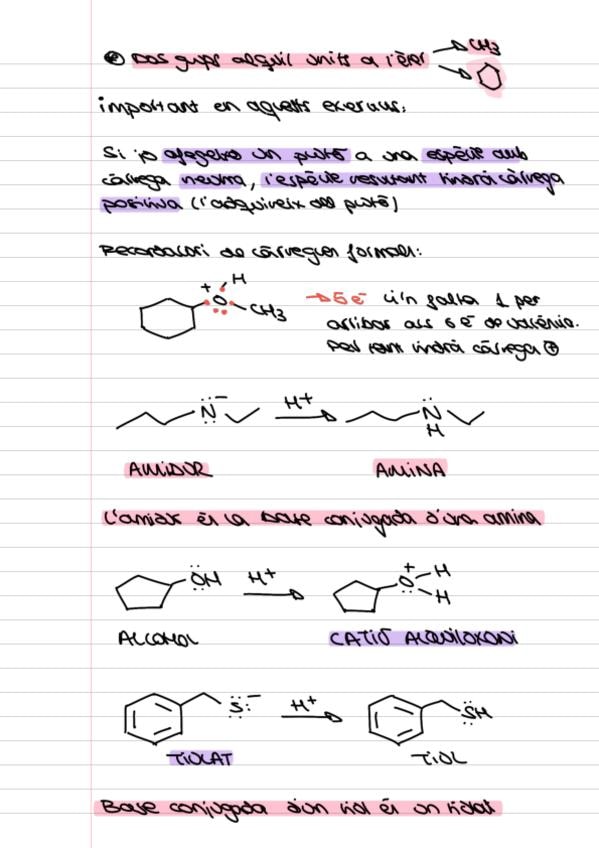 Dos grups alquil units a l'èter → CH3
important en aquests exercicis:
Si jo afegeixo un protó a una espècie amb
càrrega neutra, l'espècie resultant tindrà càrrega
positiva (l'adquireix del protó)
Recordatori de càrregues formals:
+ H
O CH3
→ 5 e⁻ Li'n falta 1 per
arribar als 6 e⁻ de valència.
Per tant tindrà càrrega ⊕
N⁻ H+ N
H
AMIDUR AMINA
L'amidur és la base conjugada d'una amina
OH H+ + O H
H
ALCOHOL CATIÓ ALQUILOXONI
S⁻ H+ SH
TIOLAT TIOL
Base conjugada d'un tiol és un tiolat